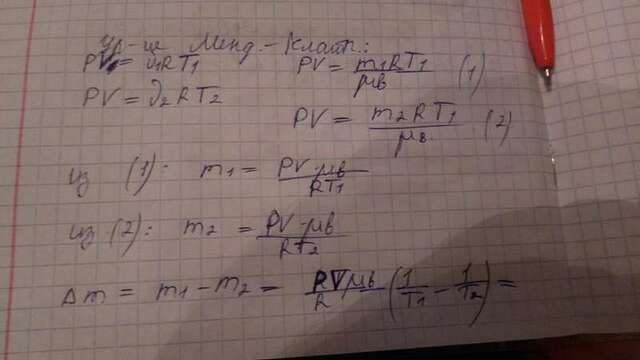 Ур-ие Менд.-Клайп.:
PV = ν₁RT₁ PV = m₁RT₁/μв (1)
PV = ν₂RT₂ PV = m₂RT₁/μв (2)
из (1): m₁ = PV·μв/RT₁
из (2): m₂ = PV·μв/RT₂
Δm = m₁ - m₂ = PVμв/R (1/T₁ - 1/T₂) =